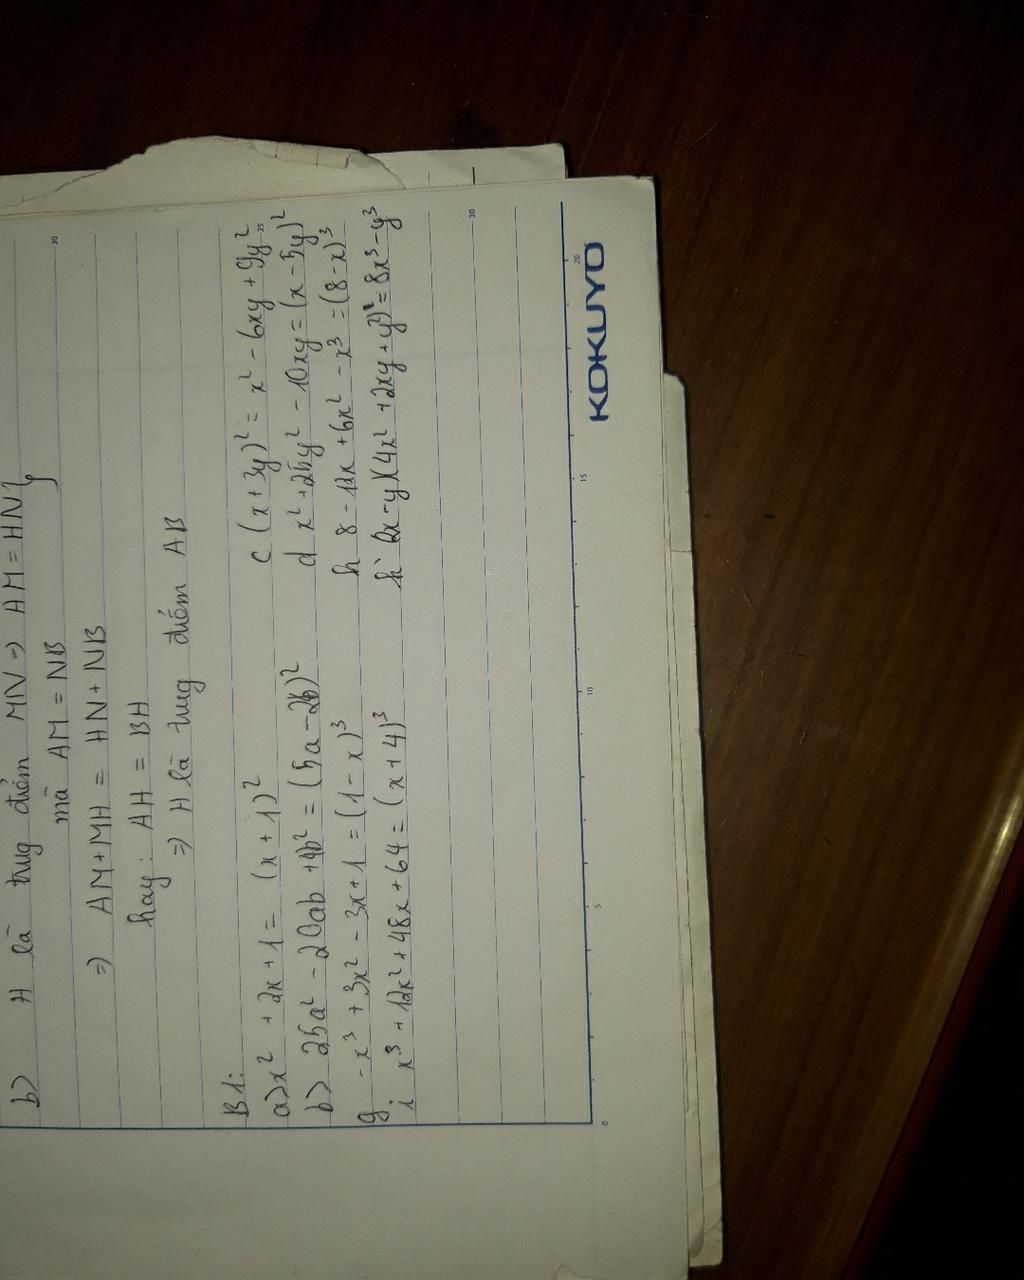 b> H là trug điểm MN => AM = HN}
mà AM = NB
=> AM+MH = HN + NB
hay: AH = BH
=> H là trug điểm AB
B1:
a> x² + 2x + 1 = (x + 1)² c (x + 3y)² = x² - 6xy + 9y²
b> 25a² - 20ab + 4b² = (5a - 2b)² d x² + 25y² - 10xy = (x - 5y)²
g - x³ + 3x² - 3x + 1 = (1 - x)³ h 8 - 12x + 6x² - x³ = (8 - x)³
i x³ + 12x² + 48x + 64 = (x + 4)³ k (2x - y)(4x² + 2xy + y²) = 8x³ - y³
KOKUYO
0 5 10 15 20
20 25 30